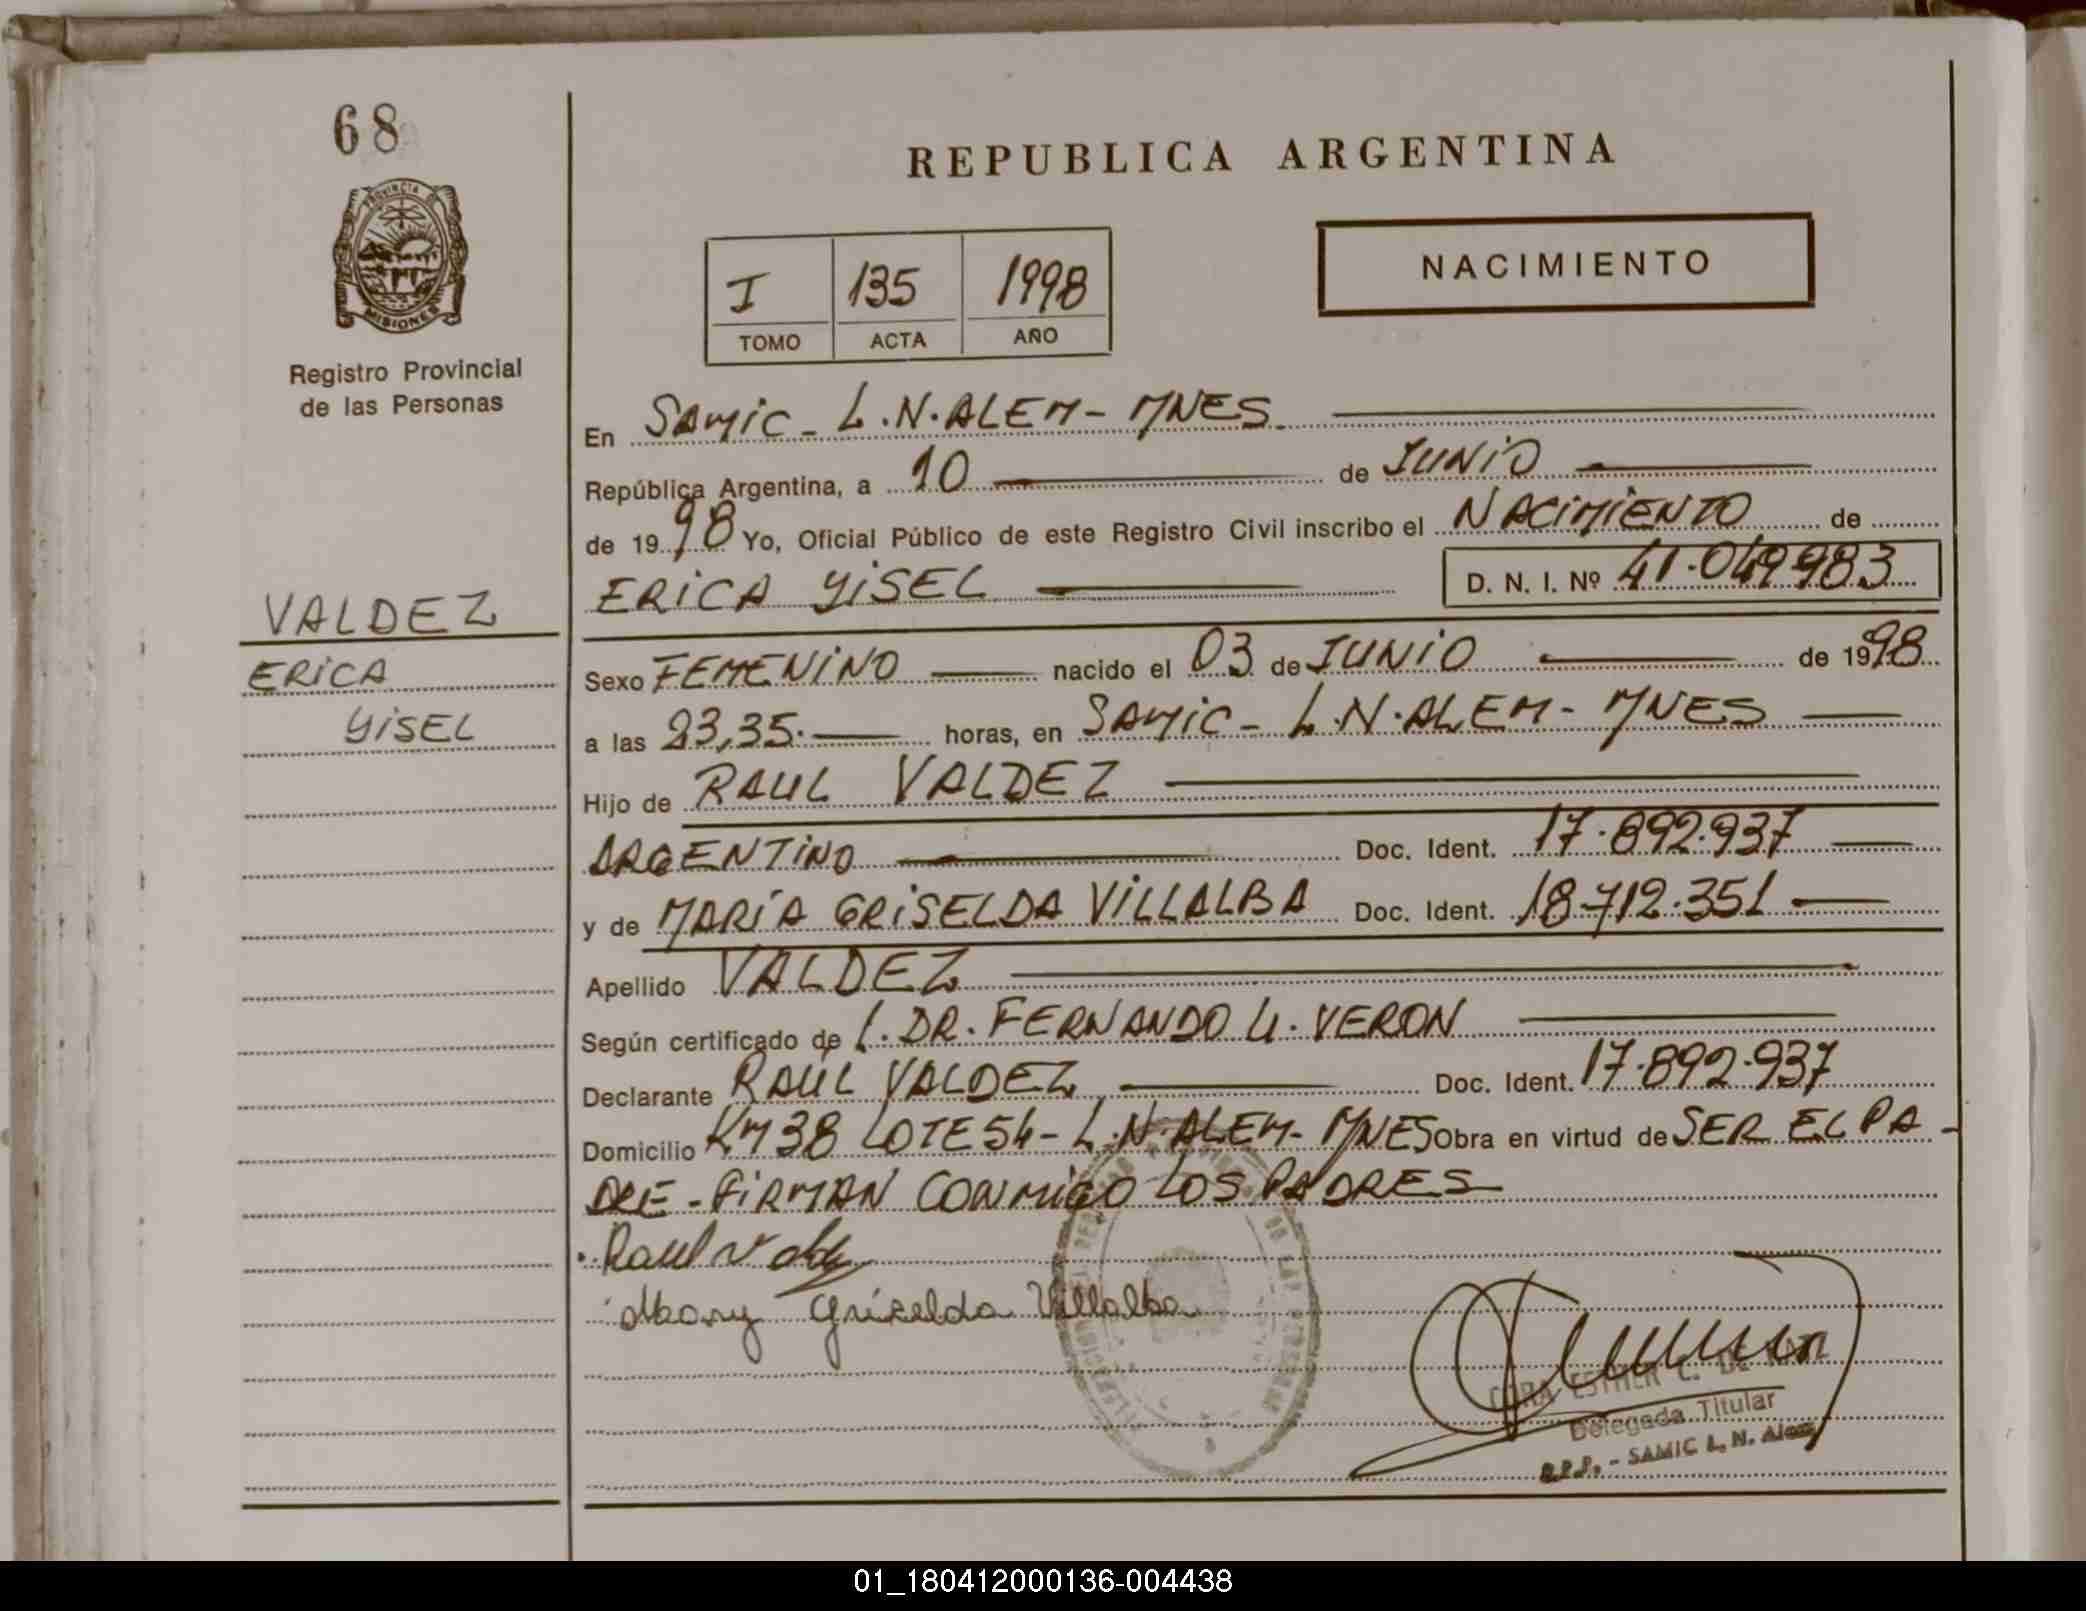 68
PROVINCIA DE
MISIONES
Registro Provincial
de las Personas
VALDEZ
ERICA
YISEL
REPUBLICA ARGENTINA
I 135 1998
TOMO ACTA AÑO
NACIMIENTO
En SAMIC - L.N. ALEM - MNES.
República Argentina, a 10 de JUNIO
de 1998 Yo, Oficial Público de este Registro Civil inscribo el NACIMIENTO de
ERICA YISEL D. N. I. Nº 41.049.983
Sexo FEMENINO nacido el 03 de JUNIO de 1998
a las 23,35. horas, en SAMIC - L.N. ALEM - MNES
Hijo de RAUL VALDEZ
ARGENTINO Doc. Ident. 17.892.937
y de MARÍA GRISELDA VILLALBA Doc. Ident. 18.712.351
Apellido VALDEZ
Según certificado de DR. FERNANDO VERON
Declarante RAUL VALDEZ Doc. Ident. 17.892.937
Domicilio KM 38 LOTE 54 - L.N. ALEM - MNES Obra en virtud de SER EL PA-
DRE - FIRMAN CONMIGO LOS PADRES
Raul
Griselda Villalba
ESTHER C. DE
Delegada Titular
R.P.P. - SAMIC L. N. Alem
01_180412000136-004438